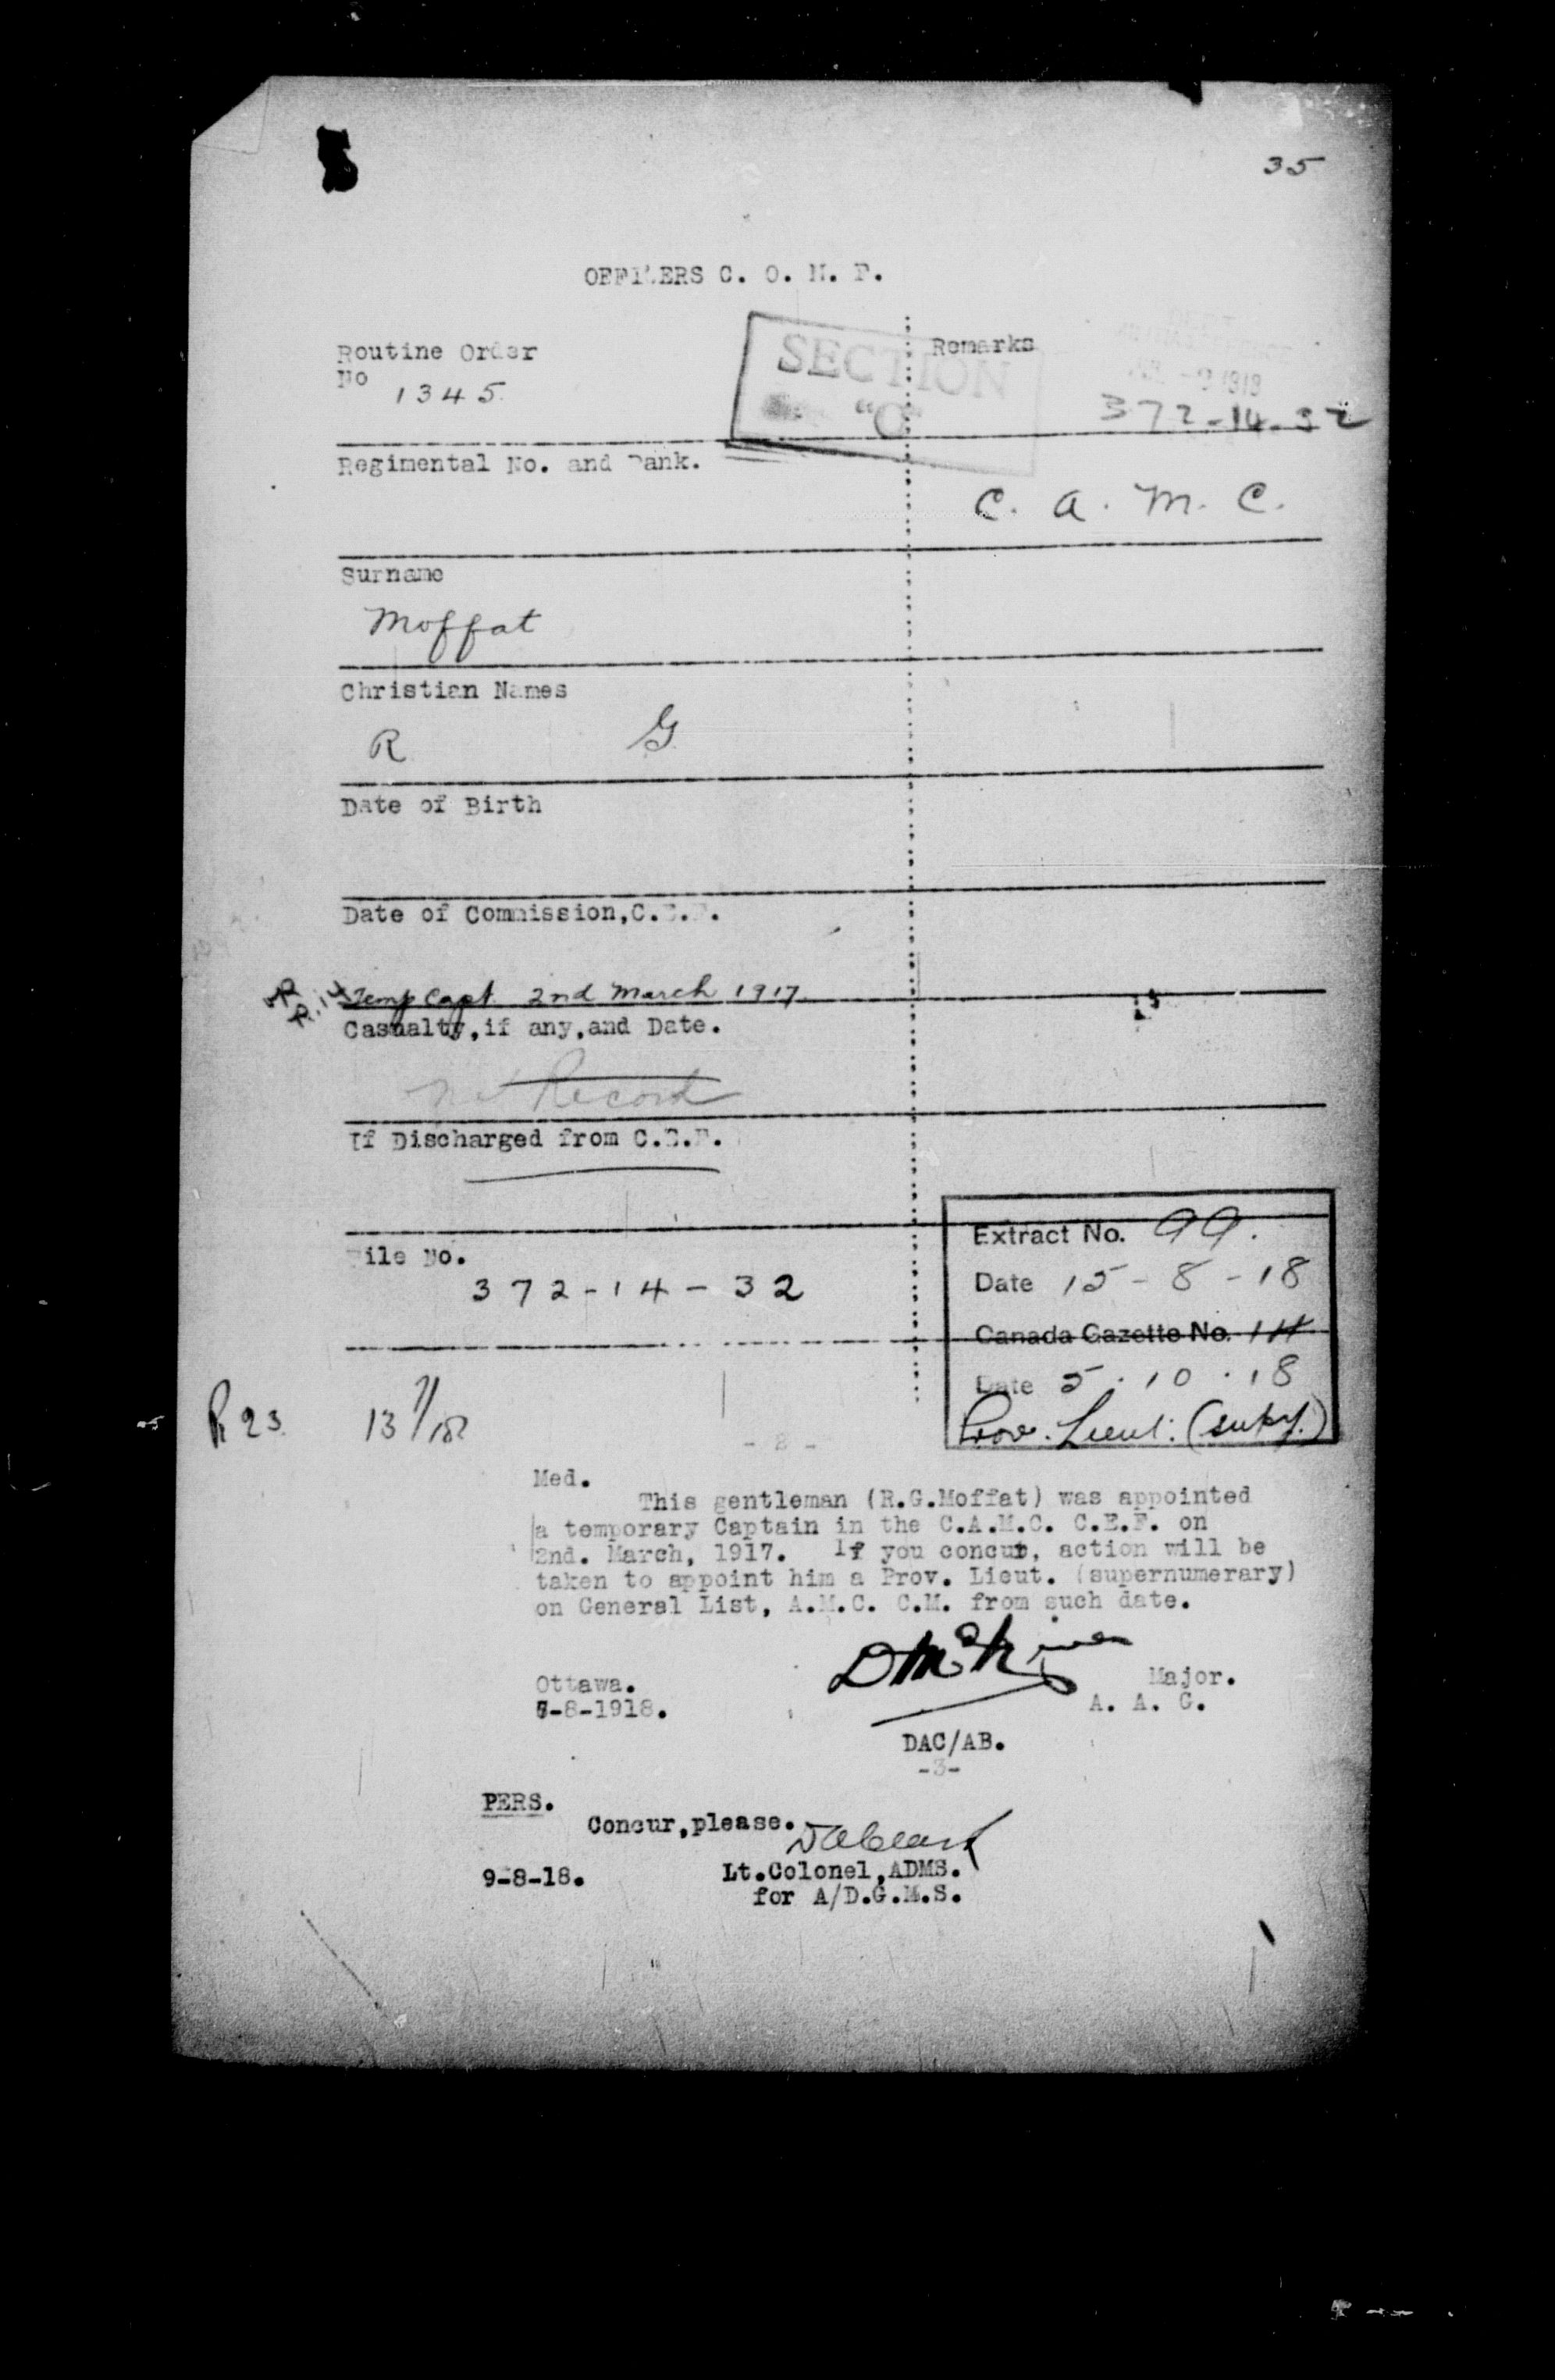 35
OFFICERS C. O. M. F.
Routine Order
No 1345
SECTION
"C"
Remarks
1918
372-14-32
Regimental No. and Rank.
C. A. M. C.
Surname
Moffat
Christian Names
R G
Date of Birth
Date of Commission, C.E.F.
Temp Capt. 2nd March 1917
Casualty, if any, and Date.
No Record
If Discharged from C.E.F.
File No.
372-14-32
Extract No. 99.
Date 15-8-18
Canada Gazette No.
Date 5.10.18
Prov. Lieut: (supy.)
R 23.
- 2 -
Med.
This gentleman (R.G.Moffat) was appointed
a temporary Captain in the C.A.M.C. C.E.F. on
2nd. March, 1917. If you concur, action will be
taken to appoint him a Prov. Lieut. (supernumerary)
on General List, A.M.C. C.M. from such date.
Ottawa.
-8-1918.
Major.
A. A. G.
DAC/AB.
-3-
PERS.
Concur,please.
9-8-18.
Lt.Colonel,ADMS.
for A/D.G.M.S.